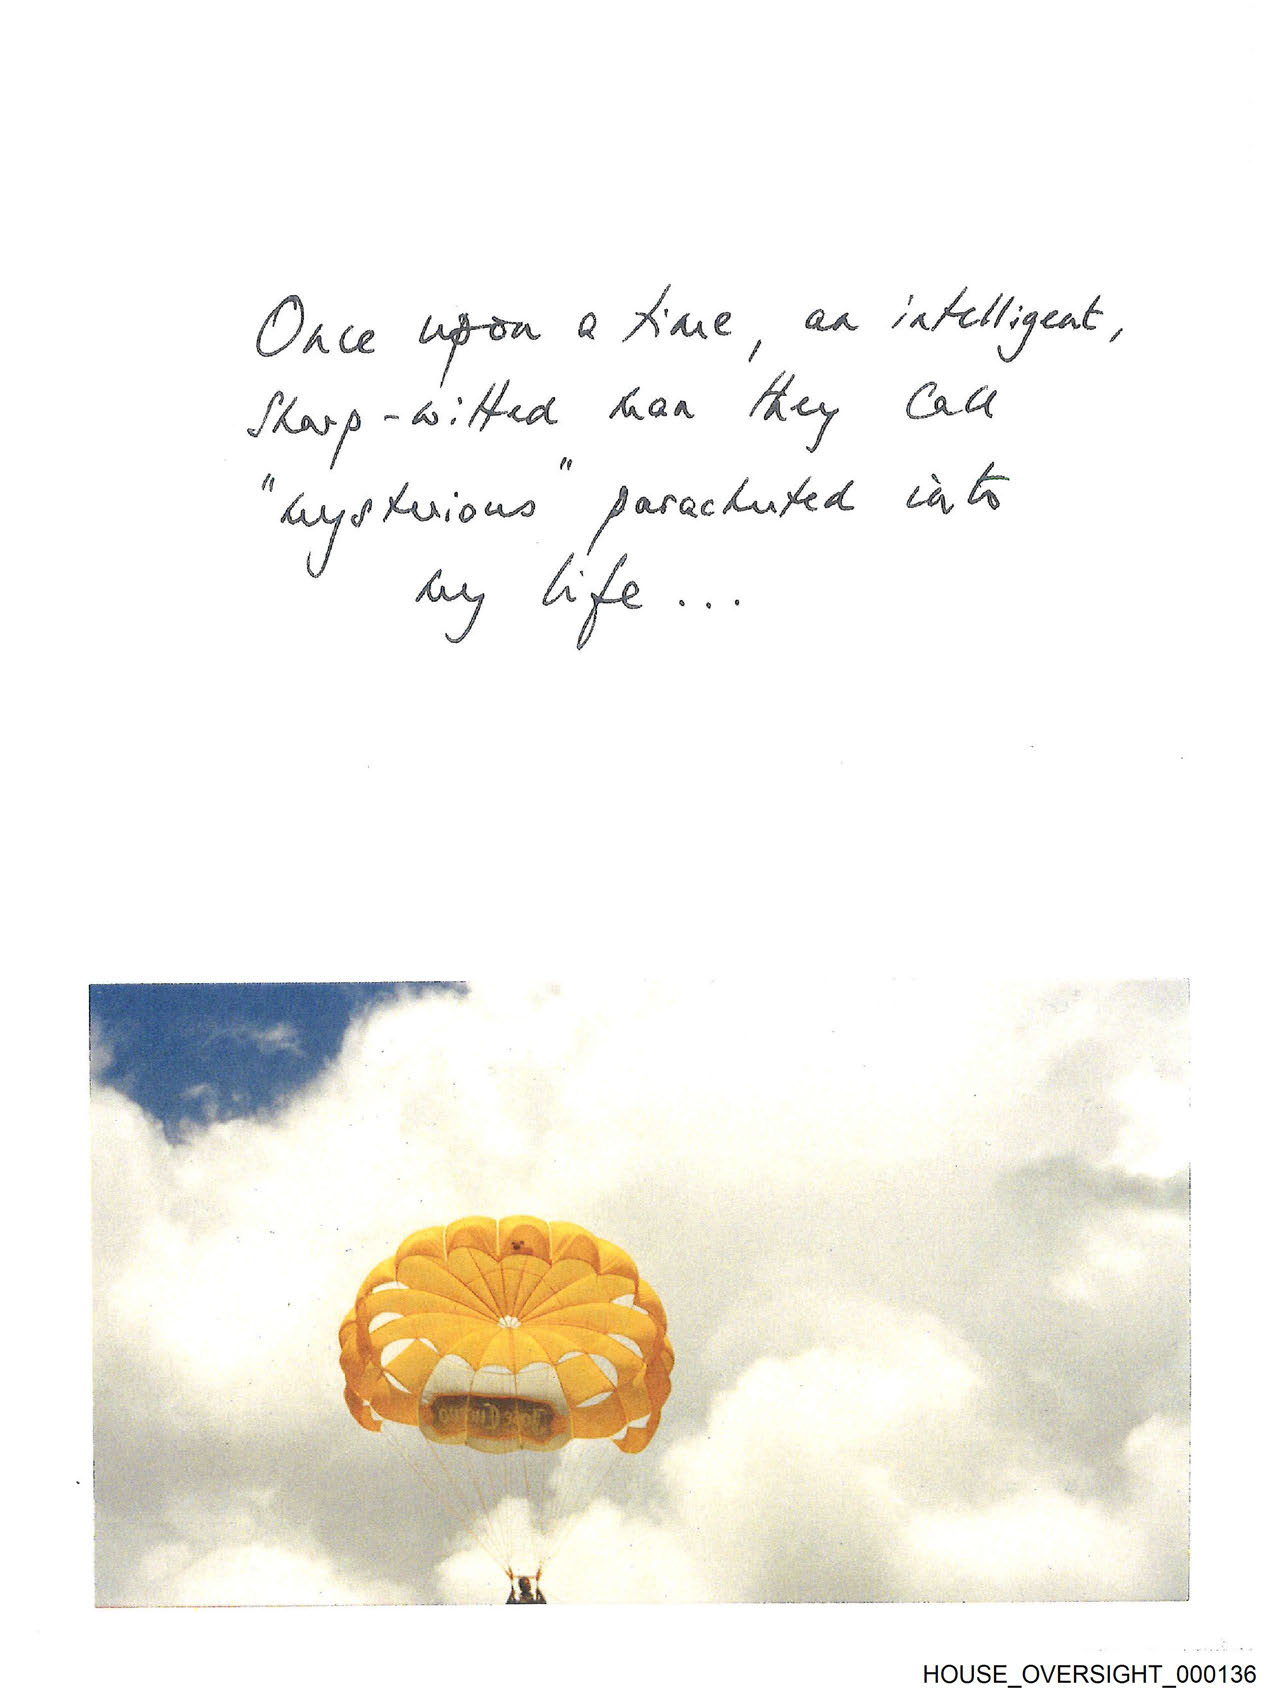 Once upon a time, an intelligent,
sharp-witted man they call
"mysterious" parachuted into
my life...
Jose Cuervo
HOUSE_OVERSIGHT_000136